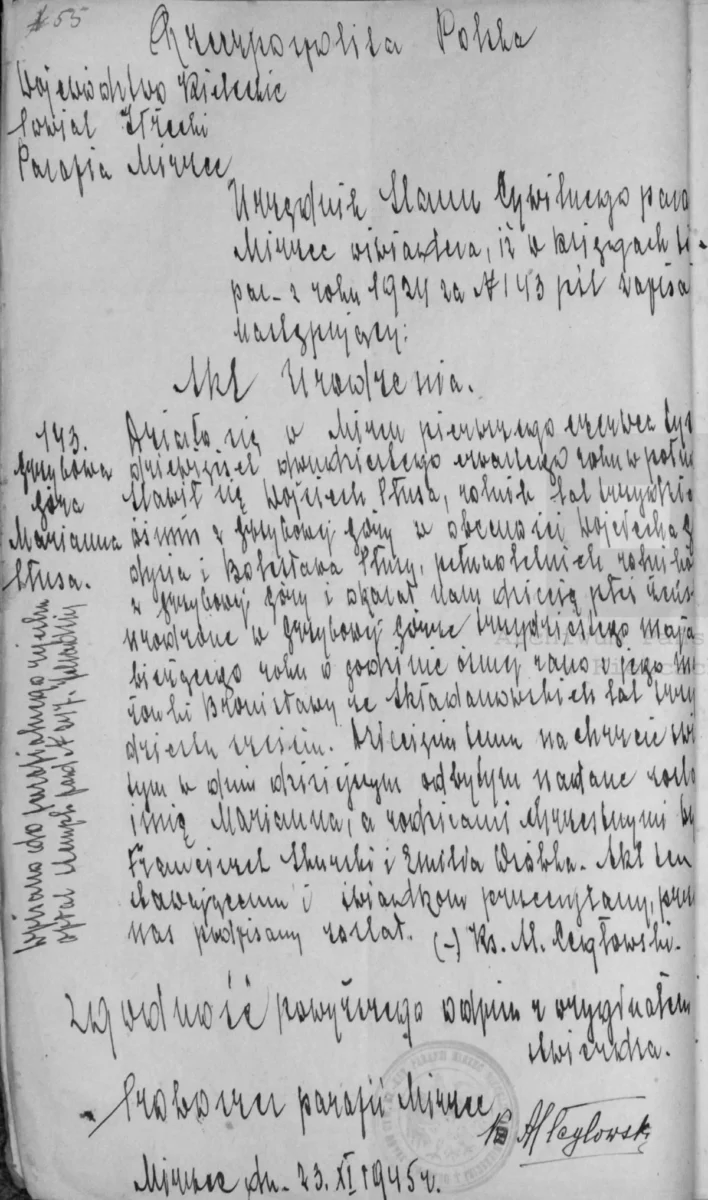 55
Rzeczpospolita Polska
Województwo Kieleckie
Powiat Iłżecki
Parafia Mirzec
Urzędnik Stanu Cywilnego para
Mirzec stwierdza, iż w księgach
par- z roku 1924 za № 143 jest zapisa
następujący:
Akt Urodzenia.
143.
Grzybowa
Góra
Marianna
Stusa.
Działo się w Mircu pierwszego czerwca tys
dziewięćset dwudziestego czwartego roku w połu
Stawił się Wojciech Stusa, rolnik lat trzydzie
ośmiu z Grzybowej Góry w obecności Wojciecha
i Bolesława Stusy, pełnoletnich rolników
z Grzybowej Góry i okazał nam dziecię płci żeńs
urodzone w Grzybowej Górze trzydziestego maja
bieżącego roku o godzinie ósmej rano z jego ma
żonki Bronisławy ze Składanowskich lat trzy
dziestu sześciu. Dziecięciu temu na chrzcie świ
tym w dniu dzisiejszym odbytym nadane zosta
imię Marianna, a rodzicami chrzestnymi by
Franciszek Skurski i Emilia Wróbka. Akt ten
stawającemu i świadkom przeczytany, prze
nas podpisany został. (-) Ks. M. Cegłowski.
Wpisano do parafialnego
Zgodność powyższego odpisu z oryginałem
stwierdza.
Proboszcz parafii Mirzec
Ks M Cegłowski
Mirzec, dn. 23. XI 1945 r.